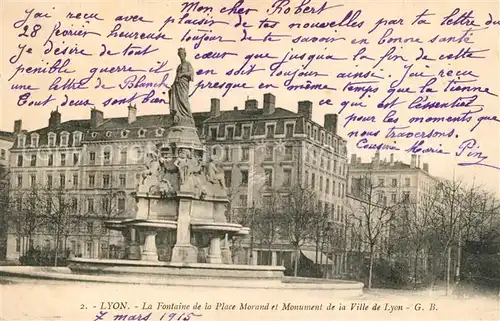 Mon cher Robert
J'ai reçu avec plaisir de tes nouvelles par ta lettre du
28 février heureuse toujour de te savoir en bonne santé
je désire de tout cœur que jusqua la fin de cette
penible guerre il en soit toujour ainsi. J'ai reçu
une lettre de Blanch en même temps que la tienne
tout deux sont bien ce qui est l'essentiel
pour les moments que
nous traversons.
Cousine Marie
2. - LYON. - La Fontaine de la Place Morand et Monument de la Ville de Lyon - G. B.
7 mars 1915